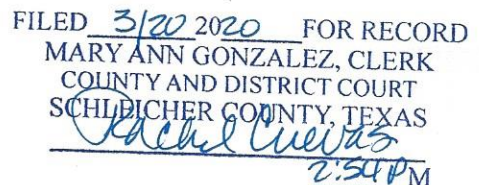 FILED 3/20 2020 FOR RECORD
MARY ANN GONZALEZ, CLERK
COUNTY AND DISTRICT COURT
SCHLEICHER COUNTY, TEXAS
Rachel Cuevas
2:54 PM